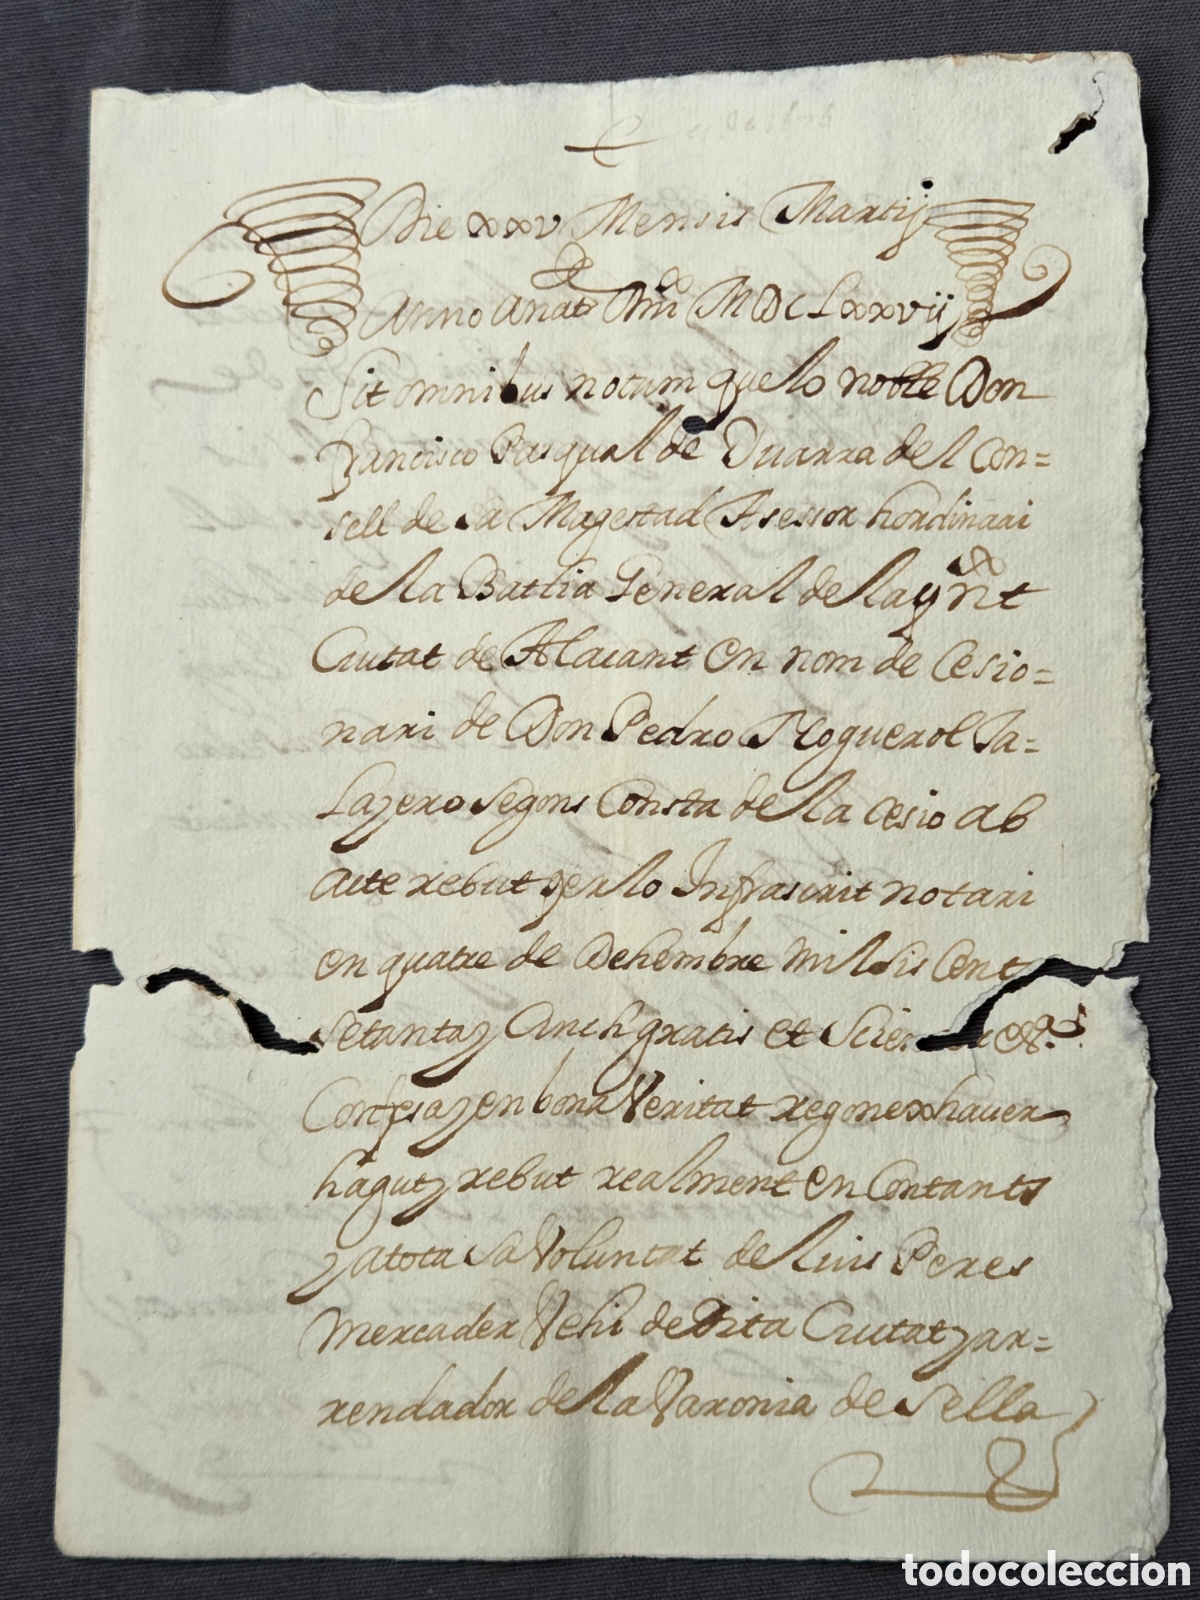 Die xxv Mensis Martij
Anno Anat Dni MDCLxxvij
Sit omnibus notum que lo noble Don
Francisco Pasqual de Ivarra del Con=
sell de sa Magestad Asesor hordinari
de la Batlia General de la pnt
Ciutat de Alacant en nom de Cesio=
nari de Don Pedro Roguerol Sa=
lazero segons Consta de la cesio ab
acte rebut per lo Infrascrit notari
en quatre de Dehembre mil sis Cent
setanta y Cinch gratis et Scienter &a
Confesa y en bona Veritat regonex haver
hagut y rebut realment en Contants
y a tota sa Voluntat de Luis Peres
Mercader Vehi de dita Ciutat y ar=
rendador de la Varonia de Sella
todocoleccion